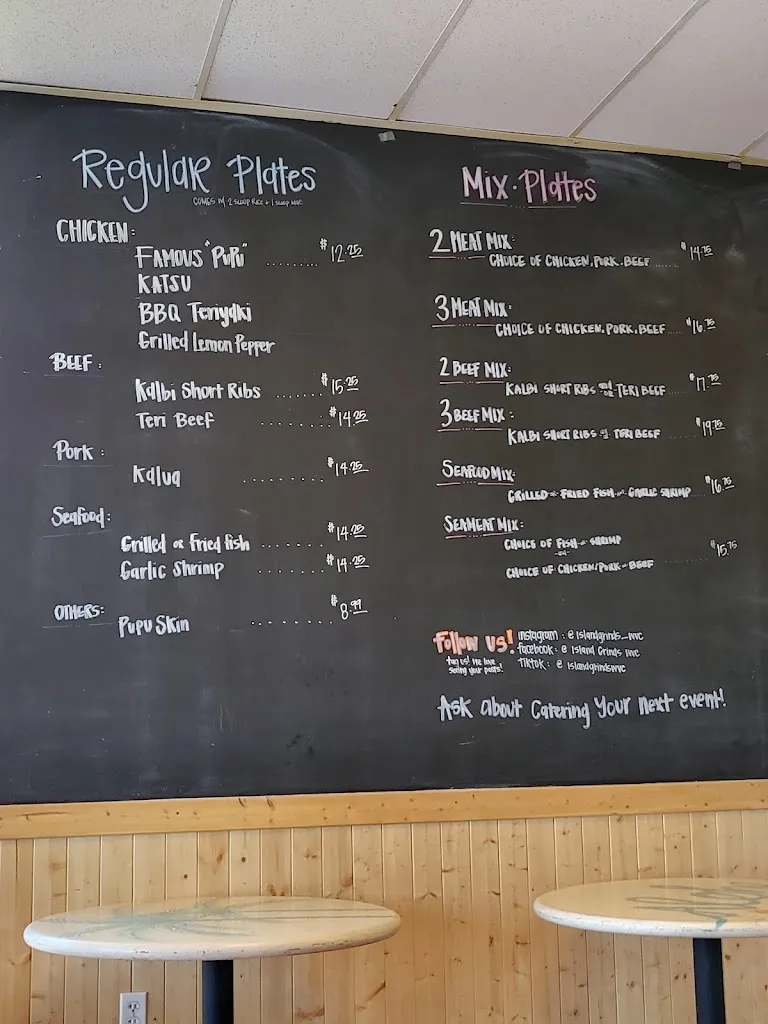 Regular Plates
COMES W/ 2 SCOOP RICE & 1 SCOOP MAC
CHICKEN:
FAMOUS "PUPU" ........ $12.25
KATSU
BBQ Teriyaki
Grilled Lemon Pepper
BEEF:
Kalbi Short Ribs ....... $15.25
Teri Beef ........ $14.25
Pork:
Kalua ........... $14.25
Seafood:
Grilled or Fried fish ........ $14.25
Garlic Shrimp ........ $14.25
OTHERS:
PUPU SKIN .......... $8.99
Mix Plates
2 MEAT MIX:
CHOICE OF CHICKEN, PORK, BEEF ...... $14.75
3 MEAT MIX:
CHOICE OF CHICKEN, PORK, BEEF .... $16.75
2 BEEF MIX:
KALBI SHORT RIBS and/or TERI BEEF ...... $17.75
3 BEEF MIX:
KALBI SHORT RIBS TERI BEEF ........ $19.75
SEAFOOD MIX:
GRILLED or FRIED FISH GARLIC SHRIMP .... $16.75
SEAMEAT MIX:
CHOICE OF FISH or SHRIMP
CHOICE OF CHICKEN/PORK or BEEF ........ $15.75
Follow us!
tag us! We love
seeing your posts!
instagram: @islandgrinds_wc
facebook: @ Island Grinds wc
TikTok: @ islandgrindswc
Ask about Catering Your next event!